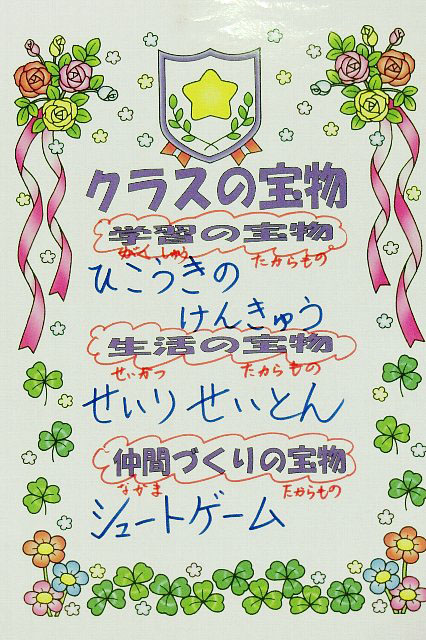 クラスの宝物
学習の宝物
がくしゅう たからもの
ひこうきの
けんきゅう
生活の宝物
せいかつ たからもの
せいりせいとん
仲間づくりの宝物
なかま たからもの
シュートゲーム